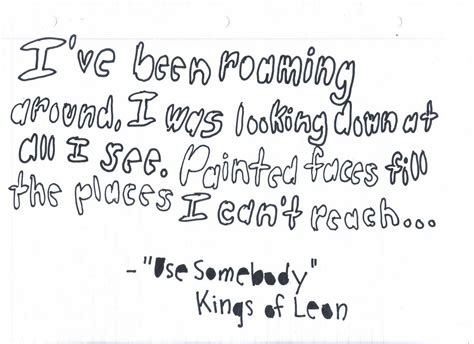 I've been roaming
around, I was looking down at
all I see. Painted faces fill
the places I can't reach...
- "Use Somebody"
Kings of Leon